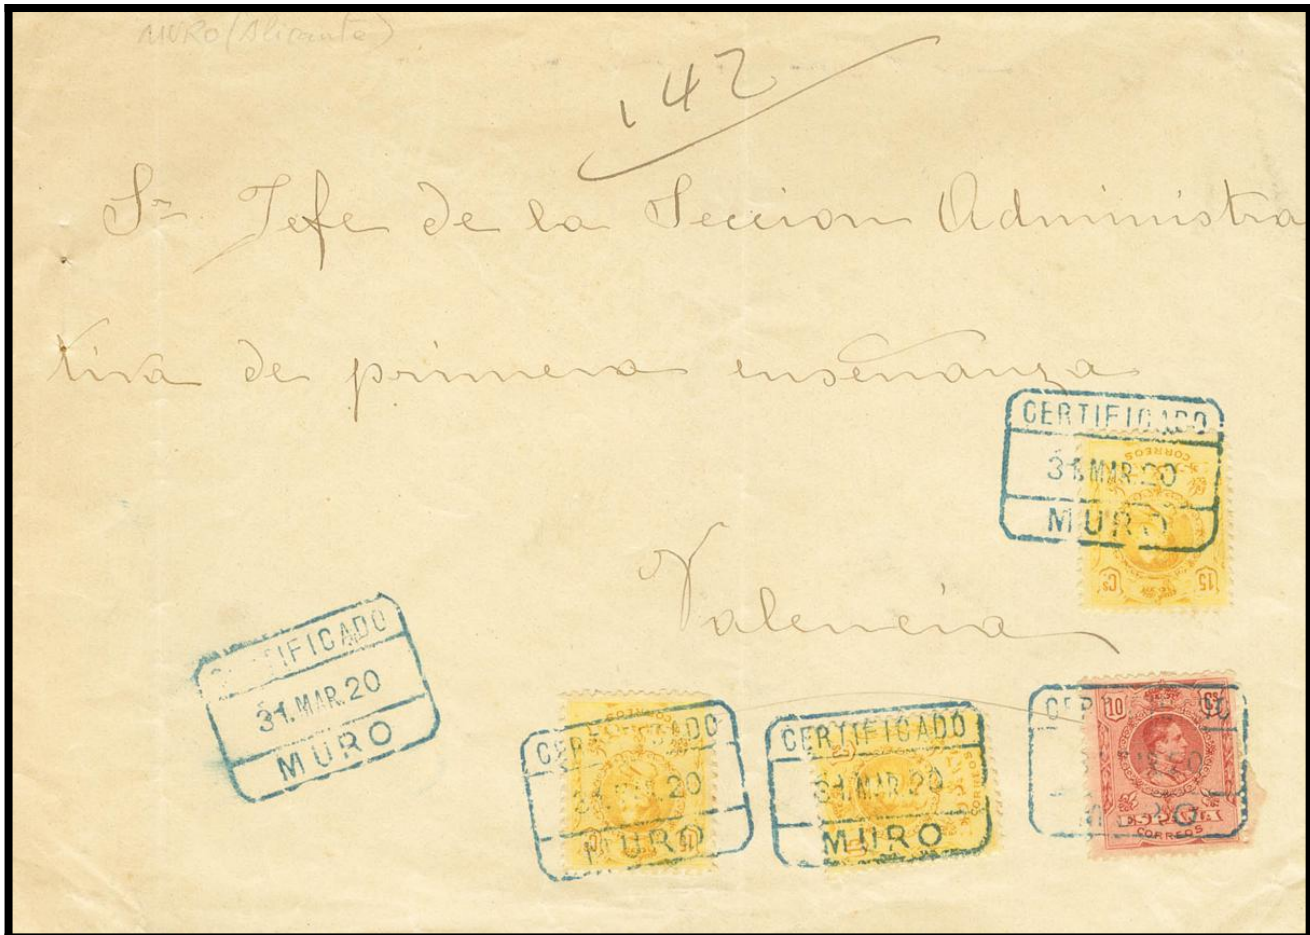 MURO (Alicante)
142
Sr. Jefe de la Seccion Administra
tiva de primera enseñanza
CERTIFICADO
31.MAR.20
MURO
CORREOS
15 Cs
Valencia
CERTIFICADO
31.MAR.20
MURO
CERTIFICADO
20
MURO
CORREOS
15
CERTIFICADO
31.MAR.20
MURO
CORREOS
10 Cs
CORREOS